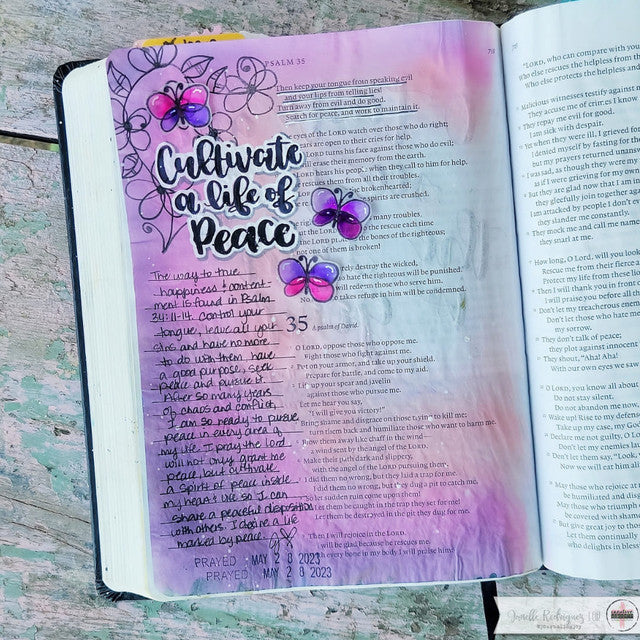 PSALM 35
Then keep your tongue from speaking evil
and your lips from telling lies!
Turn away from evil and do good.
Search for peace, and work to maintain it.
eyes of the LORD watch over those who do right;
ears are open to their cries for help.
LORD turns his face against those who do evil;
will erase their memory from the earth.
LORD hears his people when they call to him for help.
rescues them from all their troubles.
brokenhearted;
spirits are crushed.
many troubles,
the LORD to the rescue each time
the LORD the bones of the righteous;
not one of them is broken!
destroy the wicked,
who hate the righteous will be punished.
will redeem those who serve him.
No takes refuge in him will be condemned.
Cultivate
a life of
Peace
The way to true
happiness & content-
ment is found in Psalm
34:11-14. Control your
tongue, leave all your
sins and have no more
to do with them have
a good purpose, seek
peace and pursue it.
After so many years
of chaos and conflict,
I am so ready to pursue
peace in every area of
my life. I pray the Lord
will not only grant me
peace, but cultivate
a spirit of peace inside
my heart & life so I can
share a peaceful disposition
with others. I desire a life
marked by peace.
PRAYED MAY 28 2023
PRAYED MAY 28 2023
35 A psalm of David.
O LORD, oppose those who oppose me.
Fight those who fight against me.
Put on your armor, and take up your shield.
Prepare for battle, and come to my aid.
Lift up your spear and javelin
against those who pursue me.
Let me hear you say,
"I will give you victory!"
Bring shame and disgrace on those trying to kill me;
turn them back and humiliate those who want to harm me.
Blow them away like chaff in the wind—
a wind sent by the angel of the LORD.
Make their path dark and slippery,
with the angel of the LORD pursuing them.
I did them no wrong, but they laid a trap for me.
I did them no wrong, but they dug a pit to catch me.
So let sudden ruin come upon them!
Let them be caught in the trap they set for me!
Let them be destroyed in the pit they dug for me.
Then I will rejoice in the LORD.
I will be glad because he rescues me.
With every bone in my body I will praise him:
"LORD, who can compare with you
Who else rescues the helpless from
Who else protects the helpless and
Malicious witnesses testify against
They accuse me of crimes I know
They repay me evil for good.
I am sick with despair.
Yet when they were ill, I grieved for
I denied myself by fasting for the
but my prayers returned unansw
I was sad, as though they were my
as if I were grieving for my own
But they are glad now that I am in
they gleefully join together aga
I am attacked by people I don't
they slander me constantly.
They mock me and call me name
they snarl at me.
How long, O Lord, will you look
Rescue me from their fierce a
Protect my life from these li
Then I will thank you in front o
I will praise you before all
Don't let my treacherous enem
Don't let those who hate me
my sorrow.
They don't talk of peace;
they plot against innocent
They shout, "Aha! Aha!
With our own eyes we saw
O LORD, you know all about
Do not stay silent.
Do not abandon me now,
Wake up! Rise to my defense
Take up my case, my God
Declare me not guilty, O L
Don't let my enemies lau
Don't let them say, "Look,
Now we will eat him ali
May those who rejoice at m
be humiliated and dis
May those who triumph
be covered with shame
But give great joy to tho
Let them continually
who delights in bless
Jenelle Rodriguez